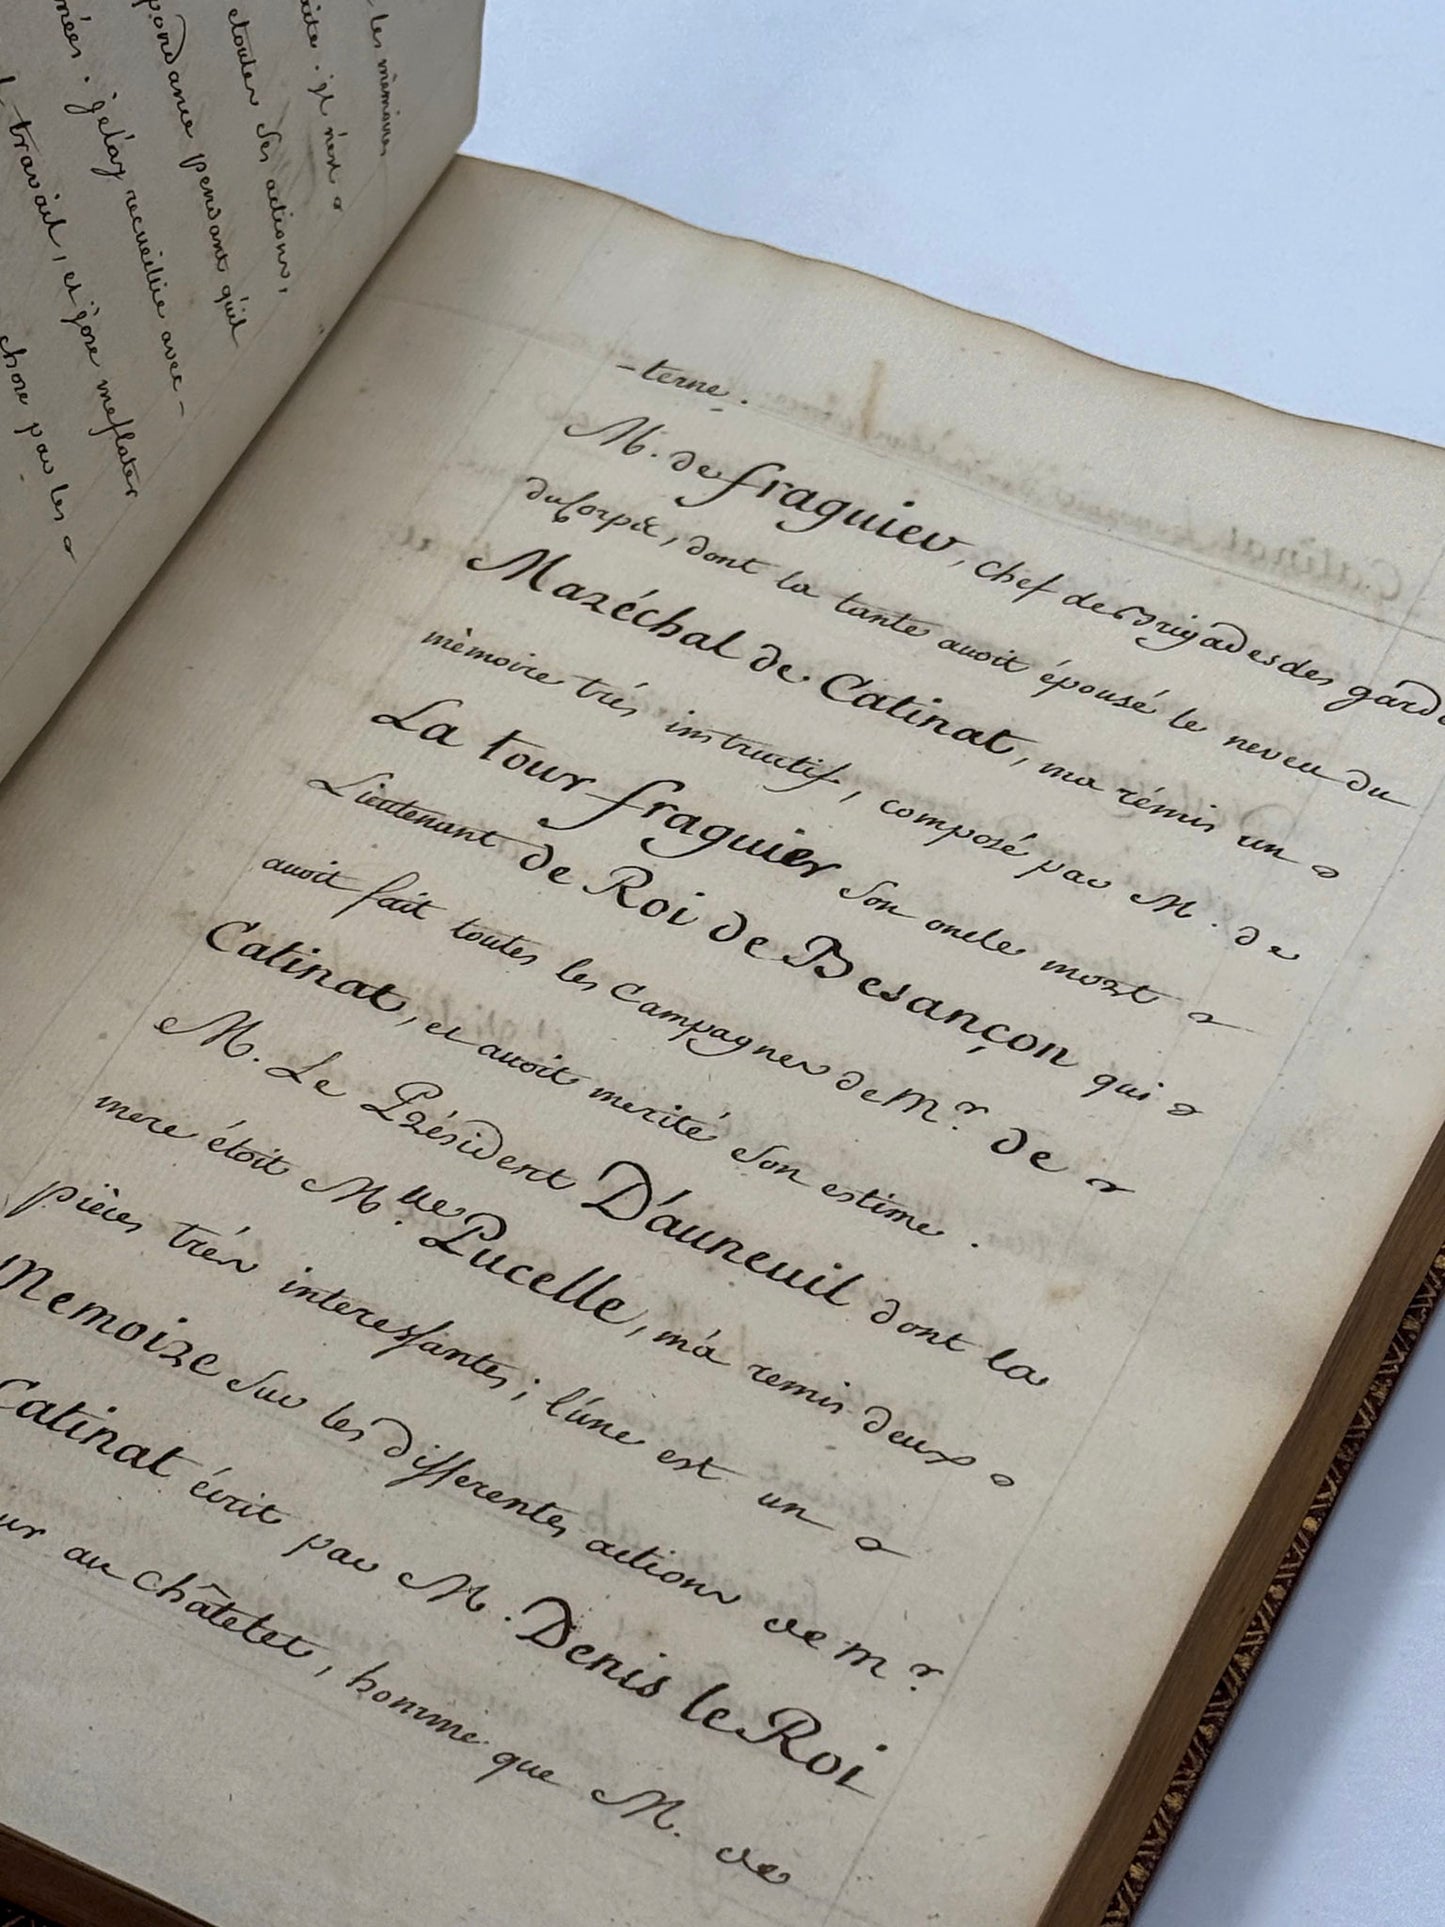 les mémoires
ite. il n'est
et toutes ses actions,
pondance pendant qu'il
nées. je l'ay recueillie avec-
travail, et j'ose me flater
chose par les
-terne.
M. de fraguier, chef de Brigades des garde
du Corps &c, dont la tante avoit épousé le neveu du
Maréchal de Catinat, ma rémis un
mèmoire trés instructif, composé par M. de
La tour fraguier son oncle mort
Lieutenant de Roi de Besançon qui
avoit fait toutes les Campagnes de Mr. de
Catinat, et avoit merité son estime.
M. Le Président D'auneuil dont la
mere étoit Mlle. Pucelle, m'a remis deux
pièces trés interessantes; l'une est un
Memoire sur les differentes actions de Mr
Catinat écrit par M. Denis le Roi
ur au Châtelet, homme que M. de